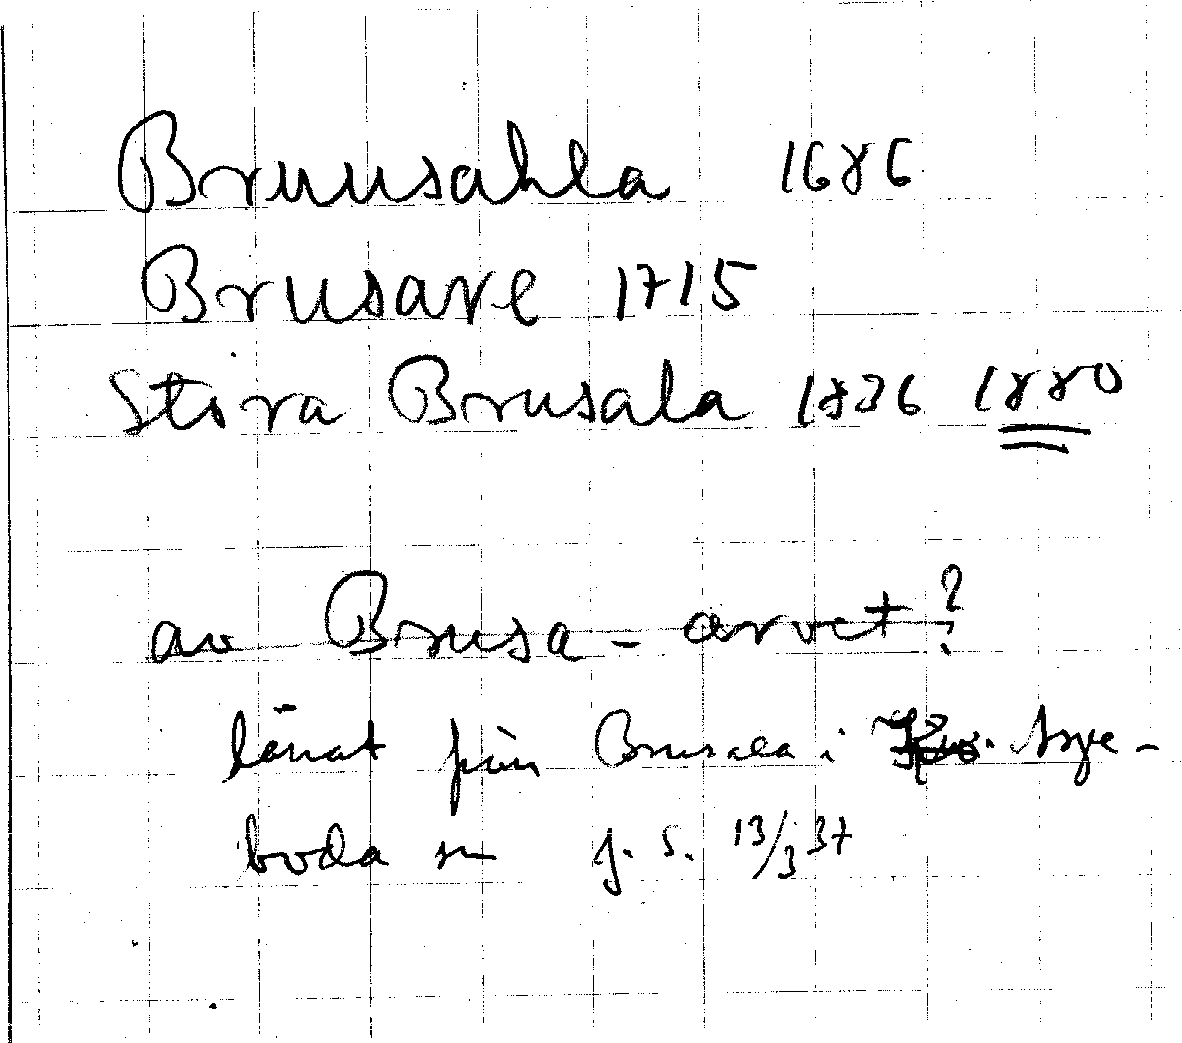 Bruusahla 1686
Brusare 1715
Stora Brusala 1836 1880
av Brusa-arvet?
lånat från Brusala i Hye-
boda sn J. S. 13/3 37